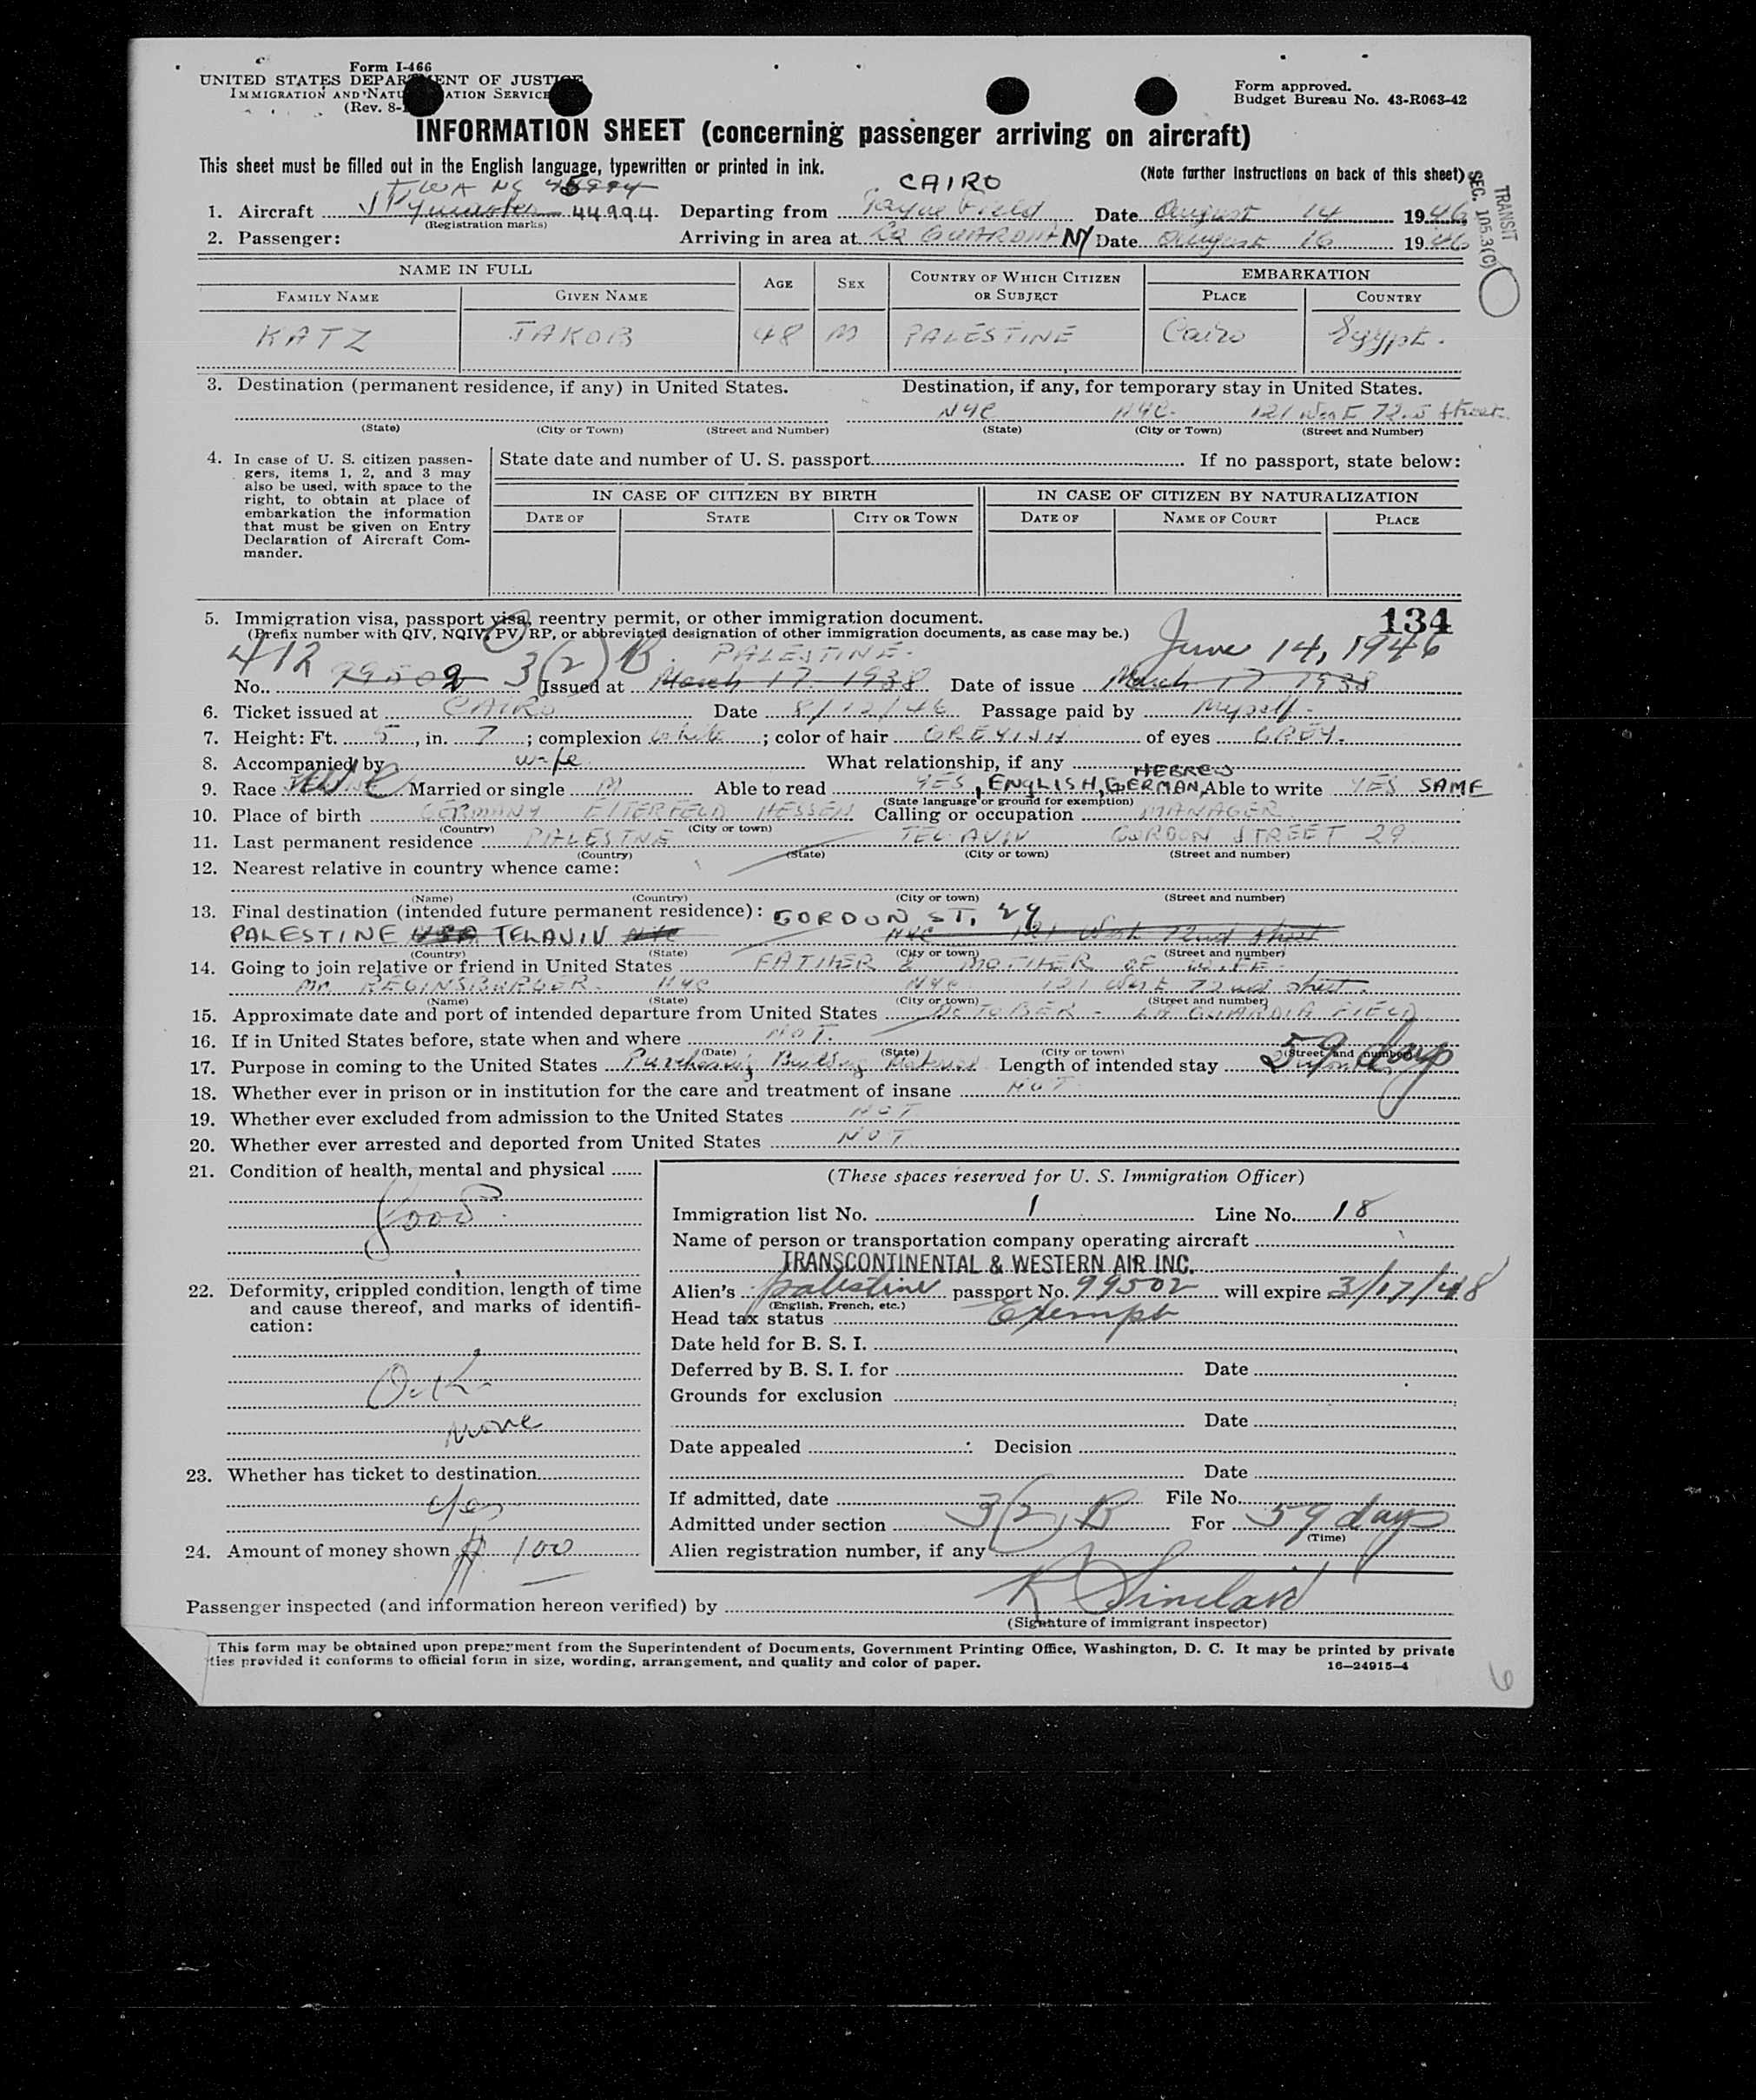 Form I-466
UNITED STATES DEPARTMENT OF JUSTICE
IMMIGRATION AND NATURALIZATION SERVICE
(Rev. 8-
Form approved.
Budget Bureau No. 43-R063-42
INFORMATION SHEET (concerning passenger arriving on aircraft)
This sheet must be filled out in the English language, typewritten or printed in ink.
(Note further instructions on back of this sheet)
TRANSIT
SEC. 105.3(C)
TWA NC
CAIRO
1. Aircraft Skymaster 44994 Departing from Payne Field Date August 14 1946
(Registration marks)
2. Passenger: Arriving in area at La GUARDIA NY Date August 16 1946
NAME IN FULL AGE SEX COUNTRY OF WHICH CITIZEN OR SUBJECT EMBARKATION
FAMILY NAME GIVEN NAME PLACE COUNTRY
KATZ JAKOB 48 M PALESTINE Cairo Egypt.
3. Destination (permanent residence, if any) in United States. Destination, if any, for temporary stay in United States.
NYC NYC. 121 West 72nd Street
(State) (City or Town) (Street and Number) (State) (City or Town) (Street and Number)
4. In case of U. S. citizen passengers, items 1, 2, and 3 may also be used, with space to the right, to obtain at place of embarkation the information that must be given on Entry Declaration of Aircraft Commander.
State date and number of U. S. passport If no passport, state below:
IN CASE OF CITIZEN BY BIRTH IN CASE OF CITIZEN BY NATURALIZATION
DATE OF STATE CITY OR TOWN DATE OF NAME OF COURT PLACE
5. Immigration visa, passport visa, reentry permit, or other immigration document. 134
(Prefix number with QIV, NQIV, PV, RP, or abbreviated designation of other immigration documents, as case may be.)
412 3(2) B. PALESTINE. June 14, 1946
No. 99502 Issued at March 17. 1938 Date of issue March 17 1938
6. Ticket issued at CAIRO Date 8/12/46 Passage paid by Myself.
7. Height: Ft. 5, in. 7; complexion White; color of hair GREYISH of eyes GREY.
8. Accompanied by wife What relationship, if any
HEBREW
9. Race Married or single M Able to read YES, ENGLISH, GERMAN, Able to write YES SAME
(State language or ground for exemption)
10. Place of birth GERMANY EITERFELD HESSEN Calling or occupation MANAGER
(Country) (City or town)
11. Last permanent residence PALESTNE TEL AVIV GORDON STREET 29
(Country) (State) (City or town) (Street and number)
12. Nearest relative in country whence came:
(Name) (Country) (City or town) (Street and number)
13. Final destination (intended future permanent residence): GORDON ST. 29
PALESTINE USA TELAVIV NYC NYC 121 West 72nd Street
(Country) (State) (City or town) (Street and number)
14. Going to join relative or friend in United States FATHER & MOTHER OF WIFE.
Mr. REGINSBURGER. NYC NYC. 121 West 72nd Street.
(Name) (State) (City or town) (Street and number)
15. Approximate date and port of intended departure from United States OCTOBER - LA GUARDIA FIELD
16. If in United States before, state when and where NOT.
(Date) (State) (City or town) (Street and number)
17. Purpose in coming to the United States Purchasing Building Material Length of intended stay 59 days
18. Whether ever in prison or in institution for the care and treatment of insane NOT
19. Whether ever excluded from admission to the United States NOT
20. Whether ever arrested and deported from United States NOT
21. Condition of health, mental and physical
Good.
22. Deformity, crippled condition, length of time and cause thereof, and marks of identification:
None
23. Whether has ticket to destination
Yes
24. Amount of money shown $ 100
(These spaces reserved for U. S. Immigration Officer)
Immigration list No. 1 Line No. 18
Name of person or transportation company operating aircraft
TRANSCONTINENTAL & WESTERN AIR INC.
Alien's Palestine passport No. 99502 will expire 3/17/48
(English, French, etc.)
Head tax status Exempt
Date held for B. S. I.
Deferred by B. S. I. for Date
Grounds for exclusion
Date
Date appealed Decision
Date
If admitted, date File No.
Admitted under section 3(2) B For 59 days
(Time)
Alien registration number, if any
Passenger inspected (and information hereon verified) by R Sinclair
(Signature of immigrant inspector)
This form may be obtained upon prepayment from the Superintendent of Documents, Government Printing Office, Washington, D. C. It may be printed by private
ties provided it conforms to official form in size, wording, arrangement, and quality and color of paper.
16—24915-4
6